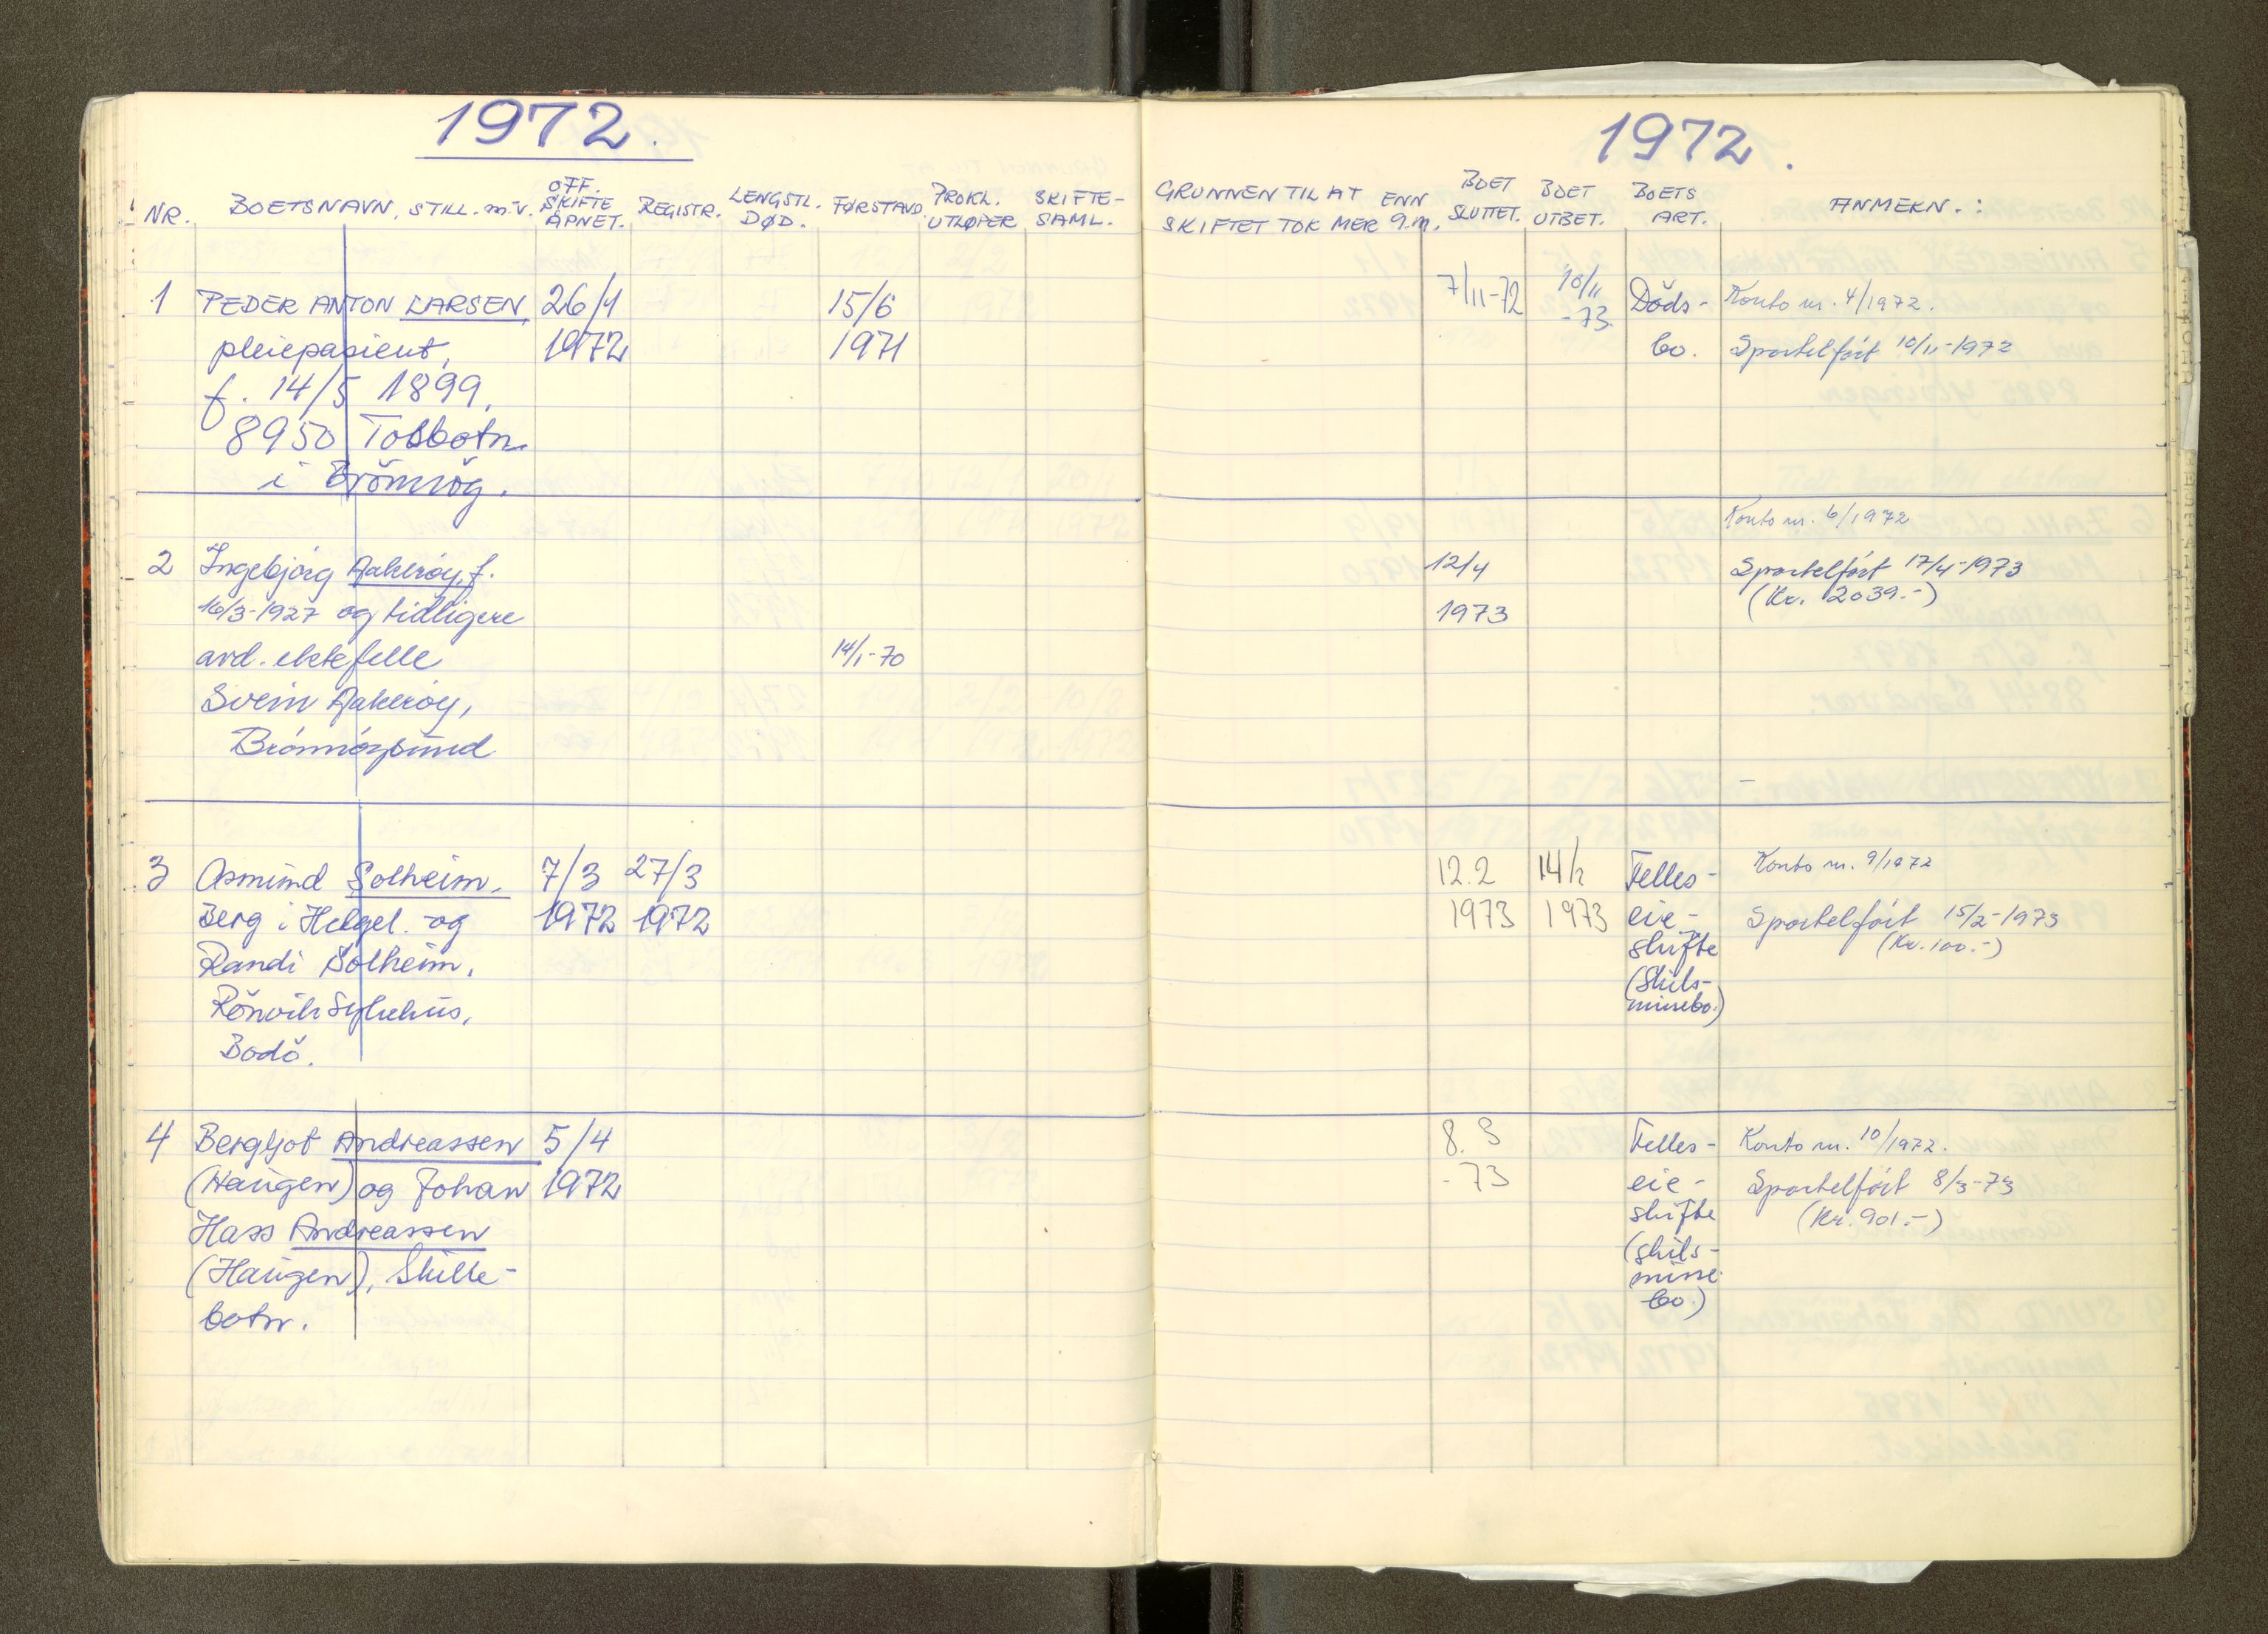 1972.
NR. BOETSNAVN, STILL. m.v. OFF. SKIFTE ÅPNET. REGISTR. LENGSTL. DØD. FØRSTAVD. PROKL. UTLØPER SKIFTE-SAML.
1 PEDER ANTON LARSEN, 26/1 15/6
pleiepasient, 1972 1971
f. 14/5 1899,
8950 Tosbotn
i Brönnög.
2 Ingebjörg Aakeröy, f.
16/3-1927 og tidligere
avd. ektefelle 14/1-70
Svein Aakeröy,
Brönnöysund
3 Asmund Solheim, 7/3 27/3
Berg i Helgel. og 1972 1972
Randi Solheim,
Rönvik Sykehus,
Bodö.
4 Bergljot Andreassen 5/4
(Haugen) og Johan 1972
Hass Andreassen
(Haugen), Skille-
botn.
1972.
GRUNNEN TIL AT SKIFTET TOK MER ENN 9.m. BOET SLUTTET. BOET UTBET. BOETS ART. ANMEKN.:
7/11-72 10/11 Döds- Konto nr. 4/1972.
-73.
bo. Sportelfört 10/11-1972
Konto nr. 6/1972
12/4 Sportelfört 17/4-1973
1973 (Kr. 2039.-)
12.2 14/2 Felles- Konto nr. 9/1972
1973 1973 eie- Sportelfört 15/2-1973
skifte (Kr. 100.-)
(Skils-
missebo.)
8.3 Felles- Konto nr. 10/1972.
-73 eie- Sportelfört 8/3-73
skifte (Kr. 901.-)
(skils-
misse
bo.)